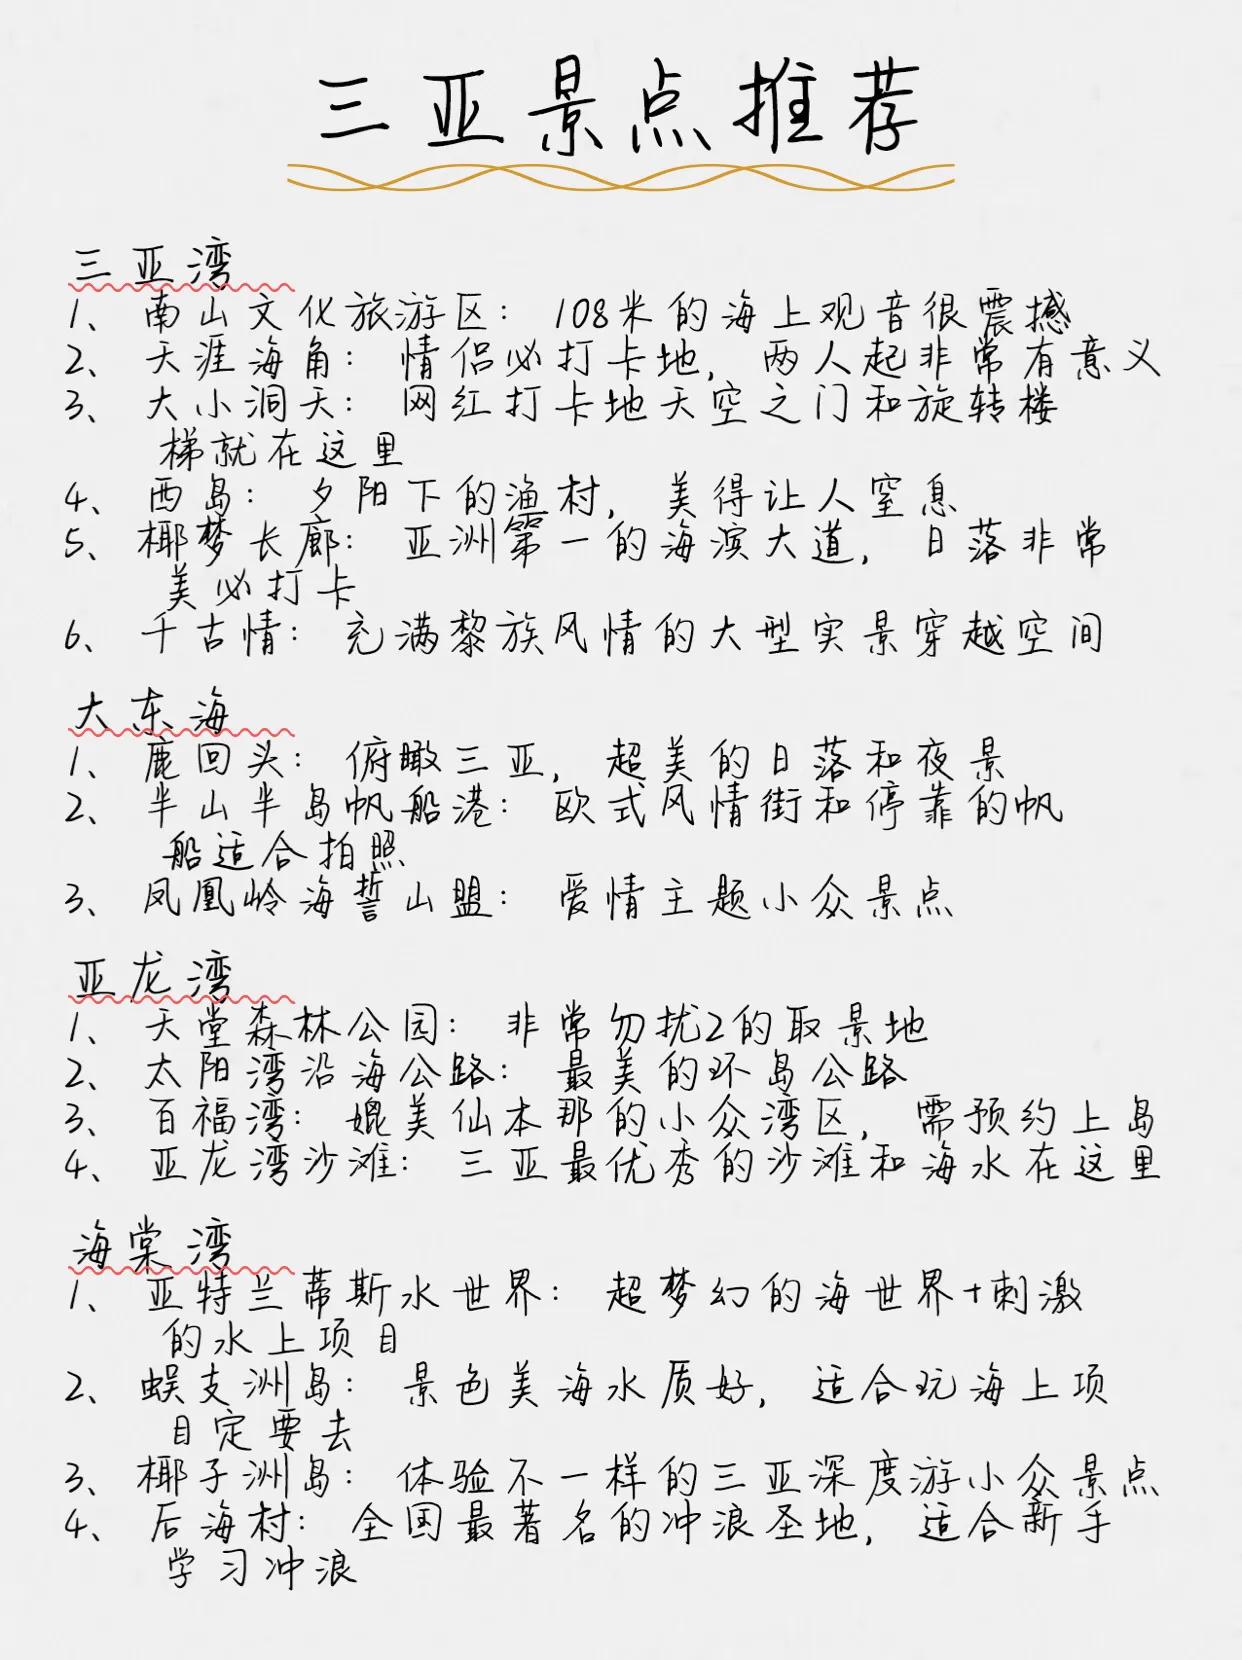 三亚景点推荐
三亚湾
1、南山文化旅游区：108米的海上观音很震撼
2、天涯海角：情侣必打卡地，两人起非常有意义
3、大小洞天：网红打卡地天空之门和旋转楼
梯就在这里
4、西岛：夕阳下的渔村，美得让人窒息
5、椰梦长廊：亚洲第一的海滨大道，日落非常
美必打卡
6、千古情：充满黎族风情的大型实景穿越空间
大东海
1、鹿回头：俯瞰三亚，超美的日落和夜景
2、半山半岛帆船港：欧式风情街和停靠的帆
船适合拍照
3、凤凰岭海誓山盟：爱情主题小众景点
亚龙湾
1、天堂森林公园：非常勿扰2的取景地
2、太阳湾沿海公路：最美的环岛公路
3、百福湾：媲美仙本那的小众湾区，需预约上岛
4、亚龙湾沙滩：三亚最优秀的沙滩和海水在这里
海棠湾
1、亚特兰蒂斯水世界：超梦幻的海世界+刺激
的水上项目
2、蜈支洲岛：景色美海水质好，适合玩海上项
目定要去
3、椰子洲岛：体验不一样的三亚深度游小众景点
4、后海村：全国最著名的冲浪圣地，适合新手
学习冲浪